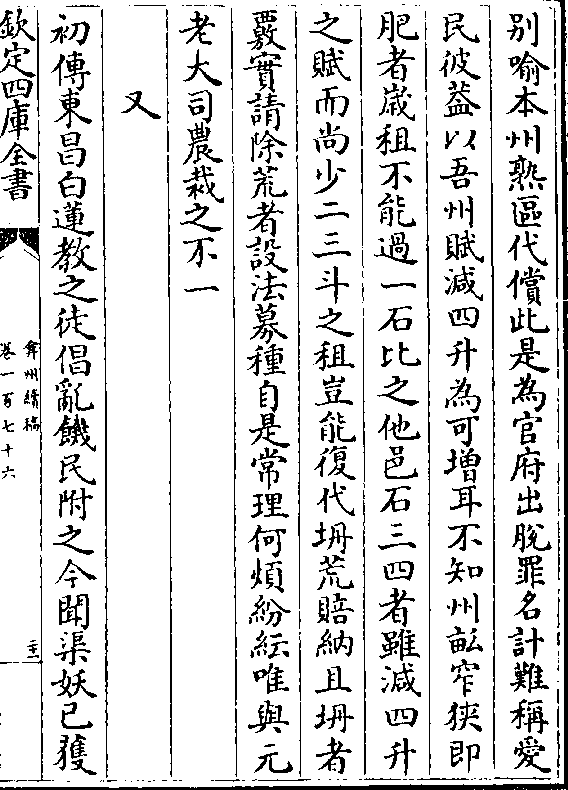 别喻本州熟區代償此是為官府出脫罪名計難稱愛
民彼葢以吾州賦減四升為可增耳不知州畝窄狹即
肥者嵗租不能過一石比之他邑石三四者雖減四升
之賦而尚少二三斗之租豈能復代坍荒賠納且坍者
覈實請除荒者設法募種自是常理何煩紛紜唯與元
老大司農裁之不一
又
初傳東昌白蓮教之徒倡亂饑民附之今聞渠妖已獲
欽定四庫全書
弇州續稿
卷一百七十六